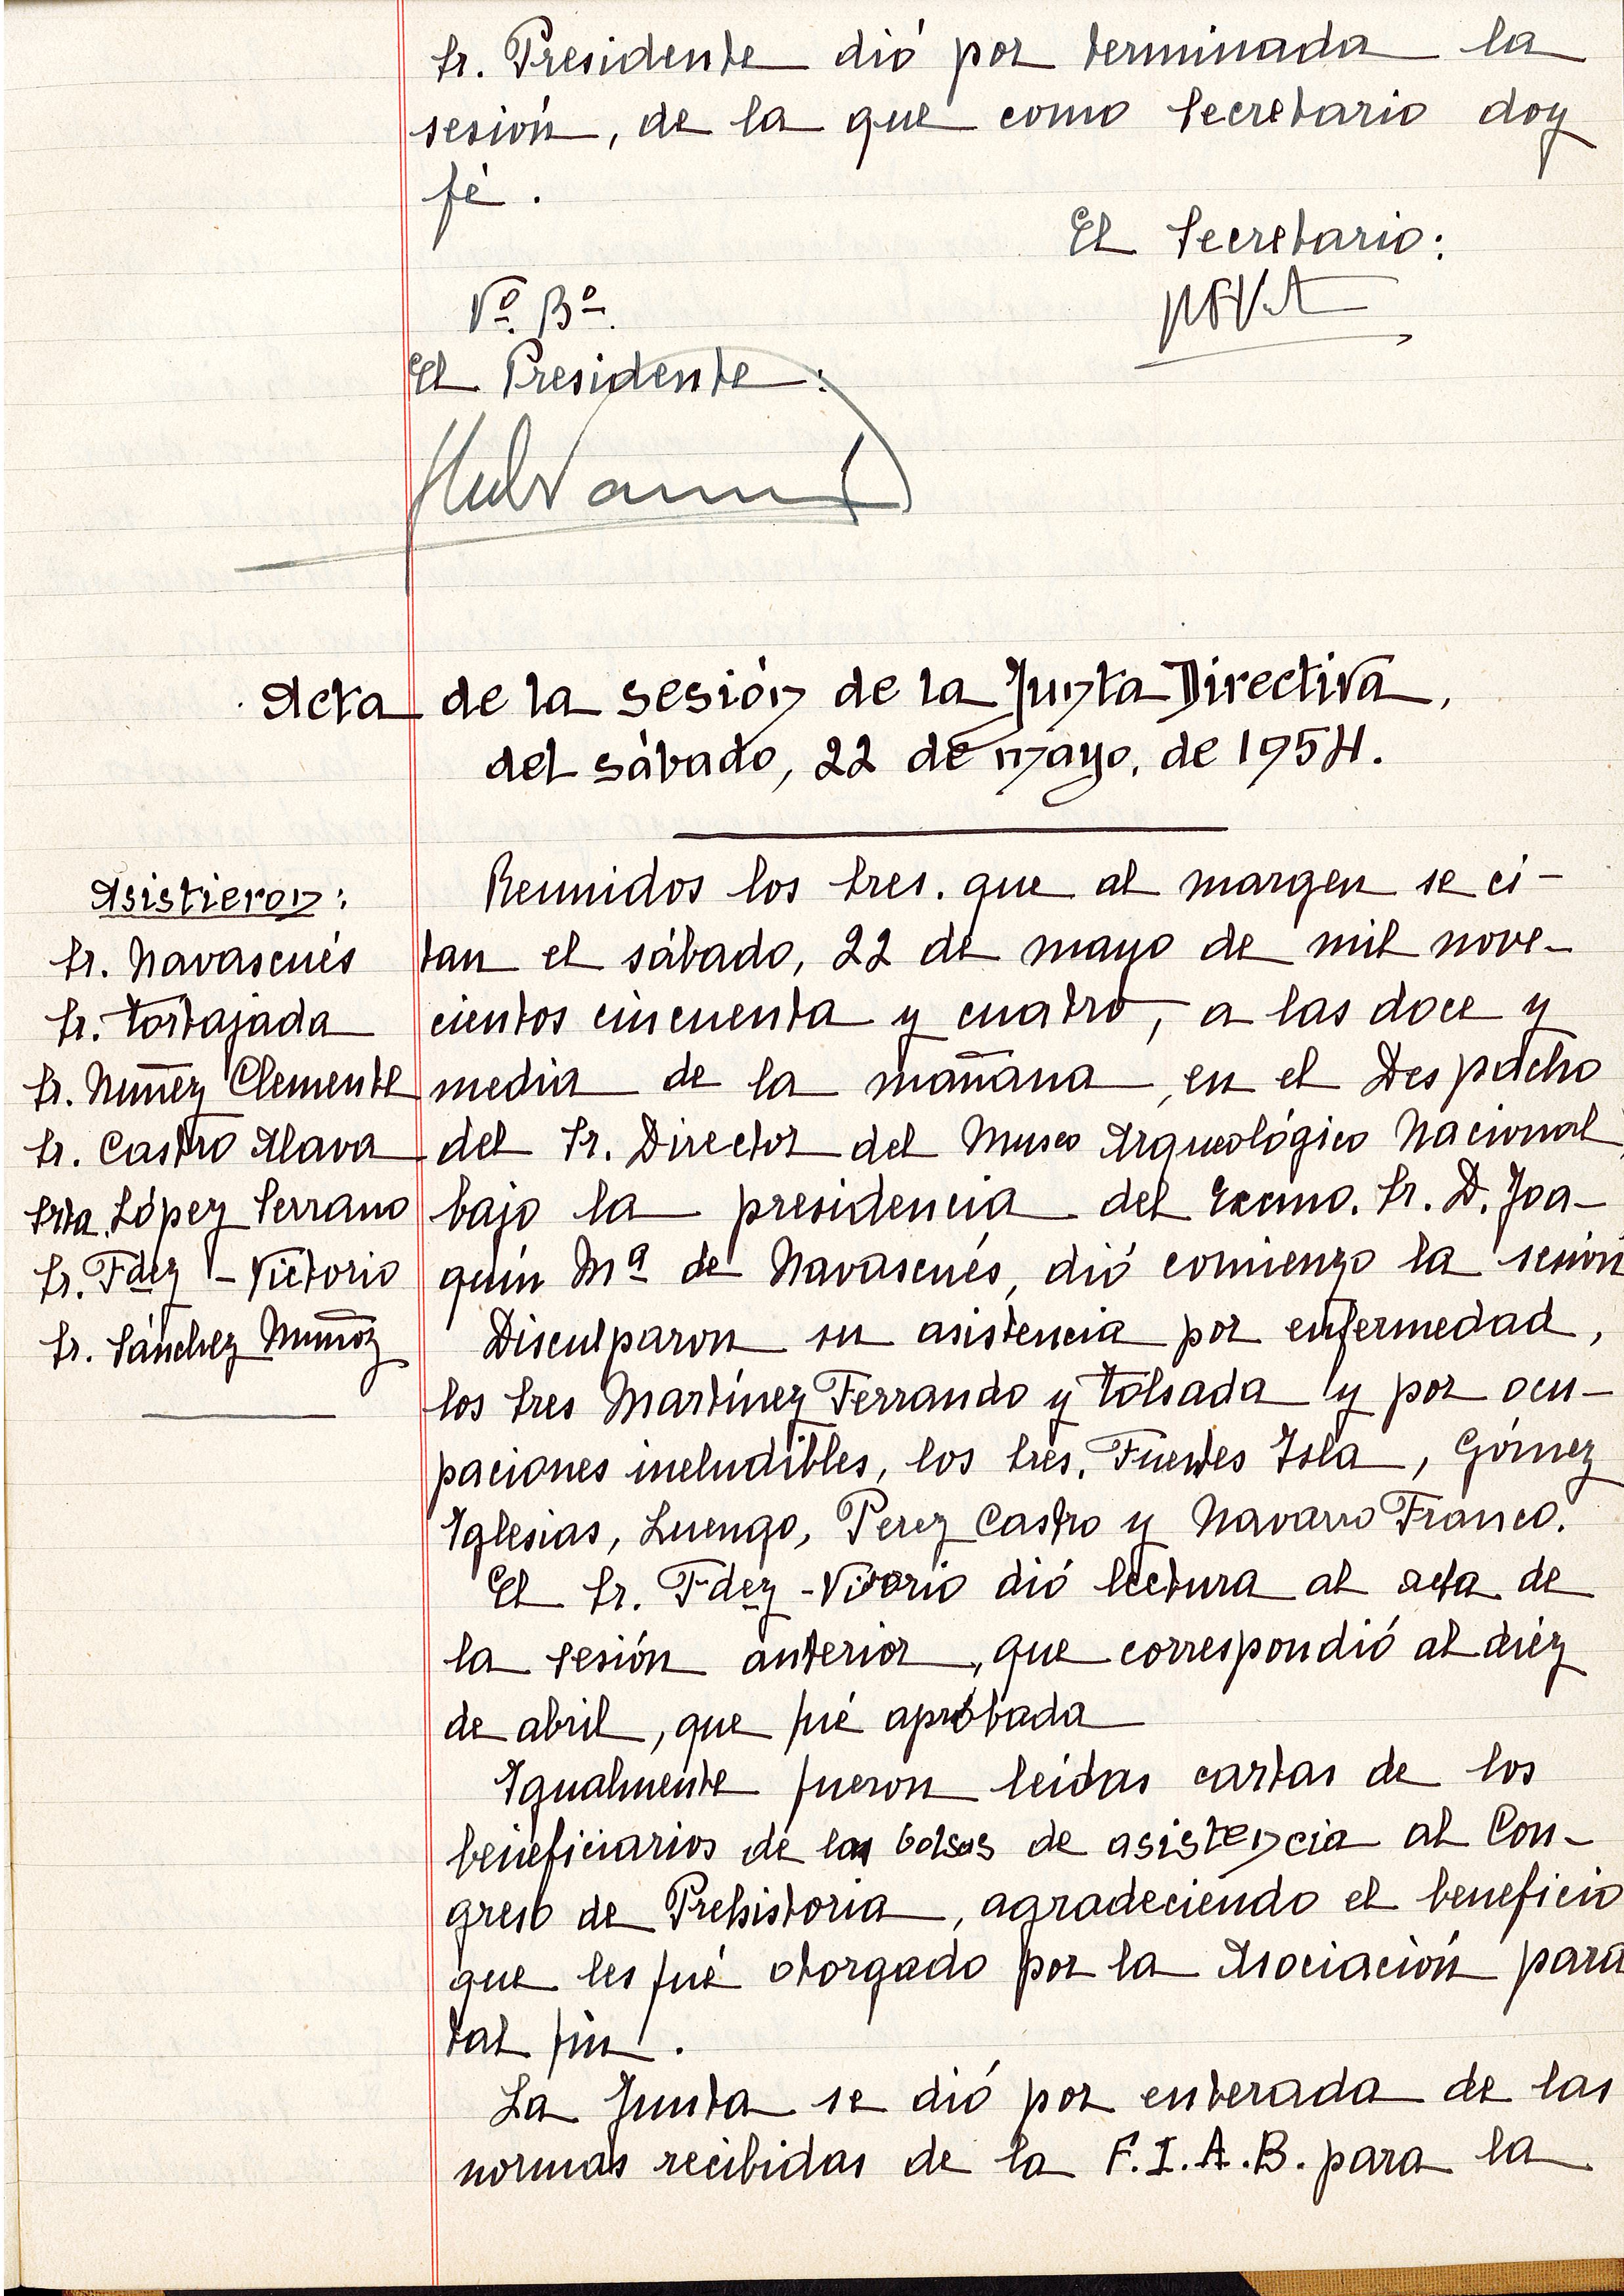 Sr. Presidente dió por terminada la
sesión, de la que como Secretario doy
fé.
El Secretario:
Vº. Bº.
El Presidente:
Acta de la sesión de la Junta Directiva,
del sábado, 22 de mayo, de 1954.
Asistieron:
Sr. Navascués
Sr. Tortajada
Sr. Nuñez Clemente
Sr. Castro Alava
Srta. López Serrano
Sr. Fdez - Victorio
Sr. Sánchez Muñoz
Reunidos los Sres. que al margen se ci-
tan el sábado, 22 de mayo de mil nove-
cientos cincuenta y cuatro, a las doce y
media de la mañana, en el Despacho
del Sr. Director del Museo Arqueológico Nacional,
bajo la presidencia del Excmo. Sr. D. Joa-
quín Mª de Navascués, dió comienzo la sesión
Disculparon su asistencia por enfermedad,
los Sres Martínez Ferrando y Tolsada y por ocu-
paciones ineludibles, los Sres. Fuentes Isla, Gómez
Iglesias, Luengo, Perez Castro y Navarro Franco.
El Sr. Fdez - Vitorio dió lectura al acta de
la sesión anterior, que correspondió al diez
de abril, que fué aprobada
Igualmente fueron leídas cartas de los
beneficiarios de las bolsas de asistencia al Con-
greso de Prehistoria, agradeciendo el beneficio
que les fué otorgado por la Asociación para
tal fin.
La Junta se dió por enterada de las
normas recibidas de la F.I.A.B. para la